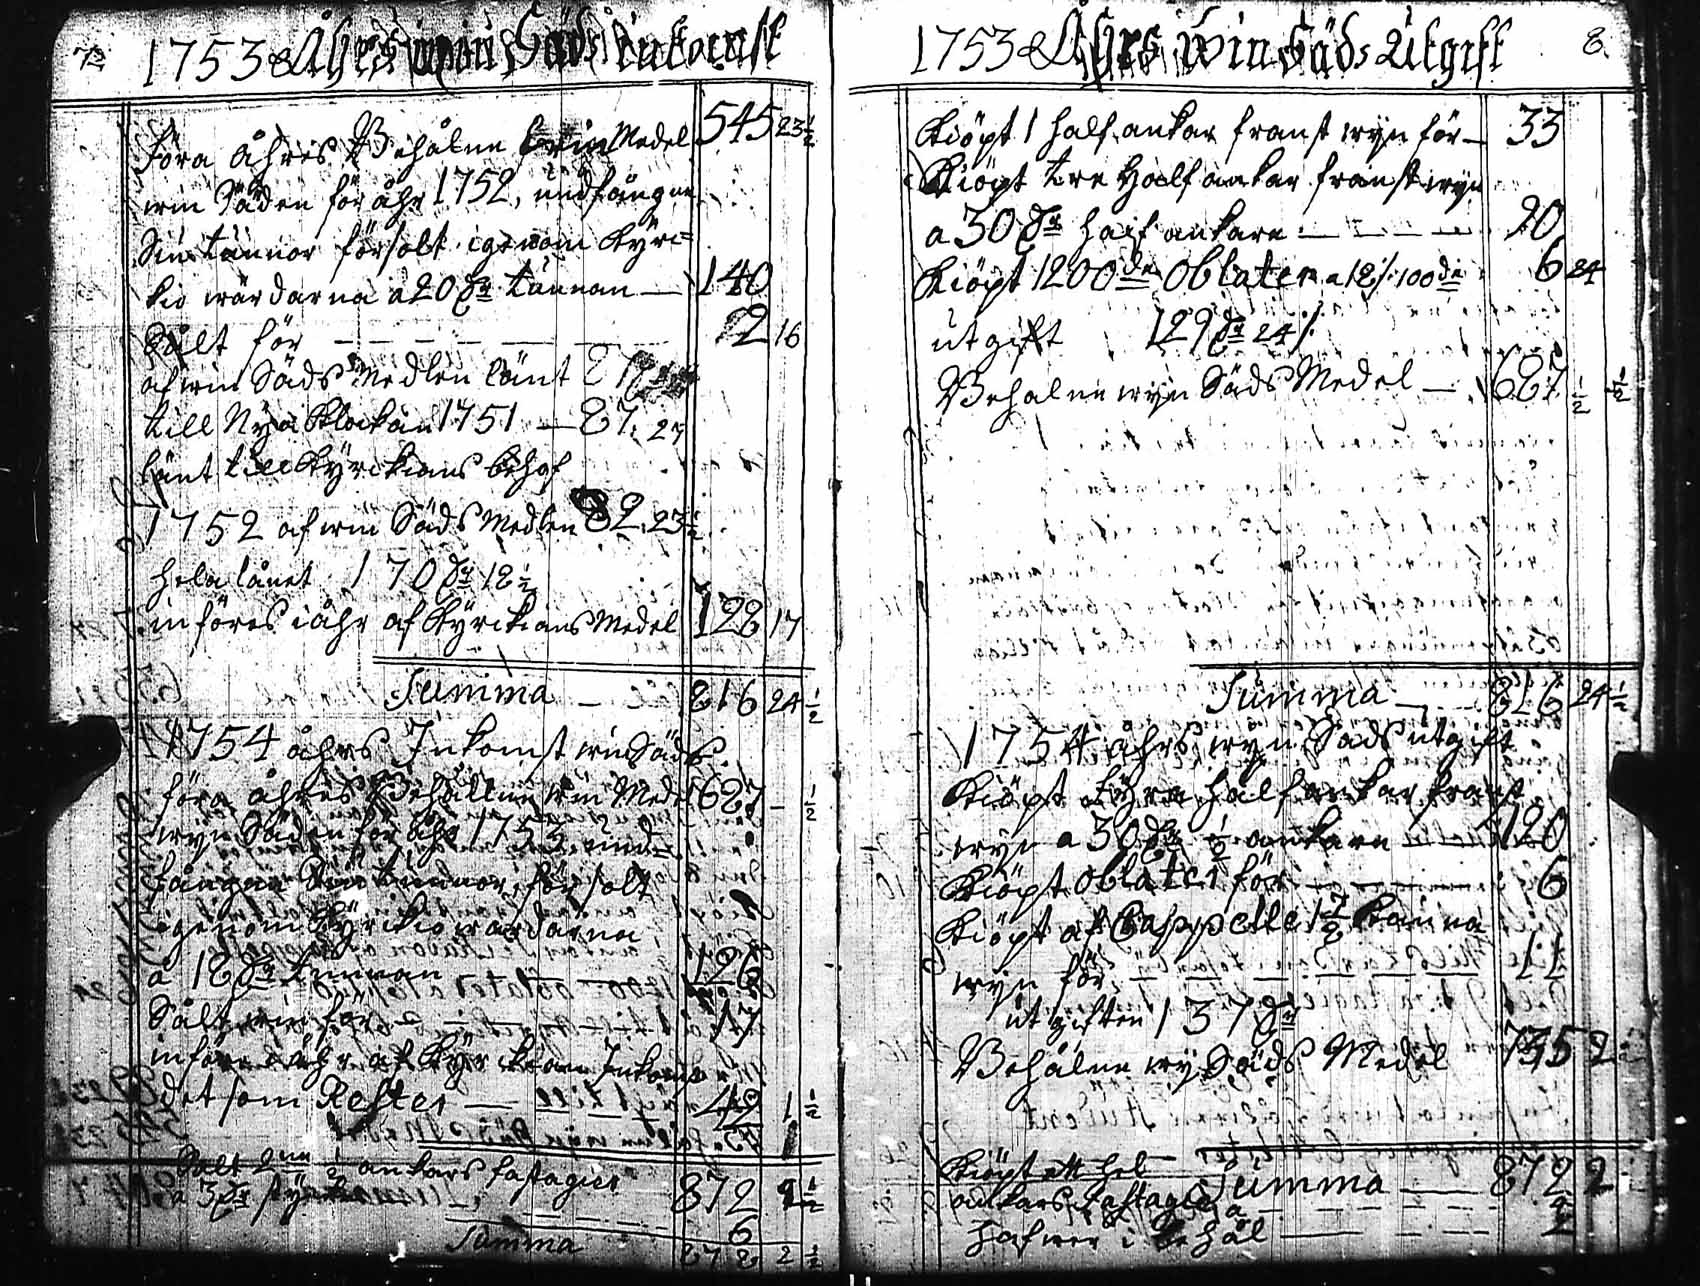 72 1753 Åhrs win Säds Inkomst
föra åhres Behålne win Medel 545 23 1/2
win Säden för åhr 1752, undfångne
Siu tunnor försolt igenom Kyri=
kio wärdarna a 20 dr tunnan — 140
Sålt för — — — — 2 16
af win Säds Medlen länt
till Nya Klockan 1751 — 87. 27
länt till Kyrckians behof
1752 af win Säds Medlen 82. 23 1/2
hela lånet 170 dr 18 1/2
införes i åhr af Kyrckians Medel 128 17
Summa — 816 24 1/2
1754 åhrs Inkomst win Säds
föra åhres Behållne win Medel 687 — 1/2
wyn Säden för åhr 1753, und=
fångna Siu tunnor, för solt
igenom Kyrkio wärdarna
a 18 dr tunnan 126
Sålt win för — 17
införes i åhr af Kyrckians Inkomst
det som Rester — 42 1 1/2
Sålt 2 1/2 ankars fastagier
a 3 dr stycket 872 2 1/2
6
Summa 878 2 1/2
1753 Åhrs Win Säds Utgift 8.
Kiöpt 1 half ankar franst wyn för — 33
Kiöpt tre Half ankar franst wyn
a 30 dr half ankare — — — 90
Kiöpt 1200 de Oblater a 18 100 de 6 24
utgift 129 dr 24
Behalne wyn Säds Medel — 687 1/2
Summa — 816 24 1/2
1754 åhrs wyn Säds utgift
Kiöpt fyra half ankar franst
wyn a 30 dr 1/2 ankare 120
Kiöpt Oblater för — — 6
Kiöpt af Cappelle 1 1/2 kanna
wyn för — — — 11
utgiften 137 dr
Behålne wyn Säds Medel 735 2 1/2
Kiöpt ett hel Summa — 872 2
ankars fastagie a — — —
hafwer i behål —